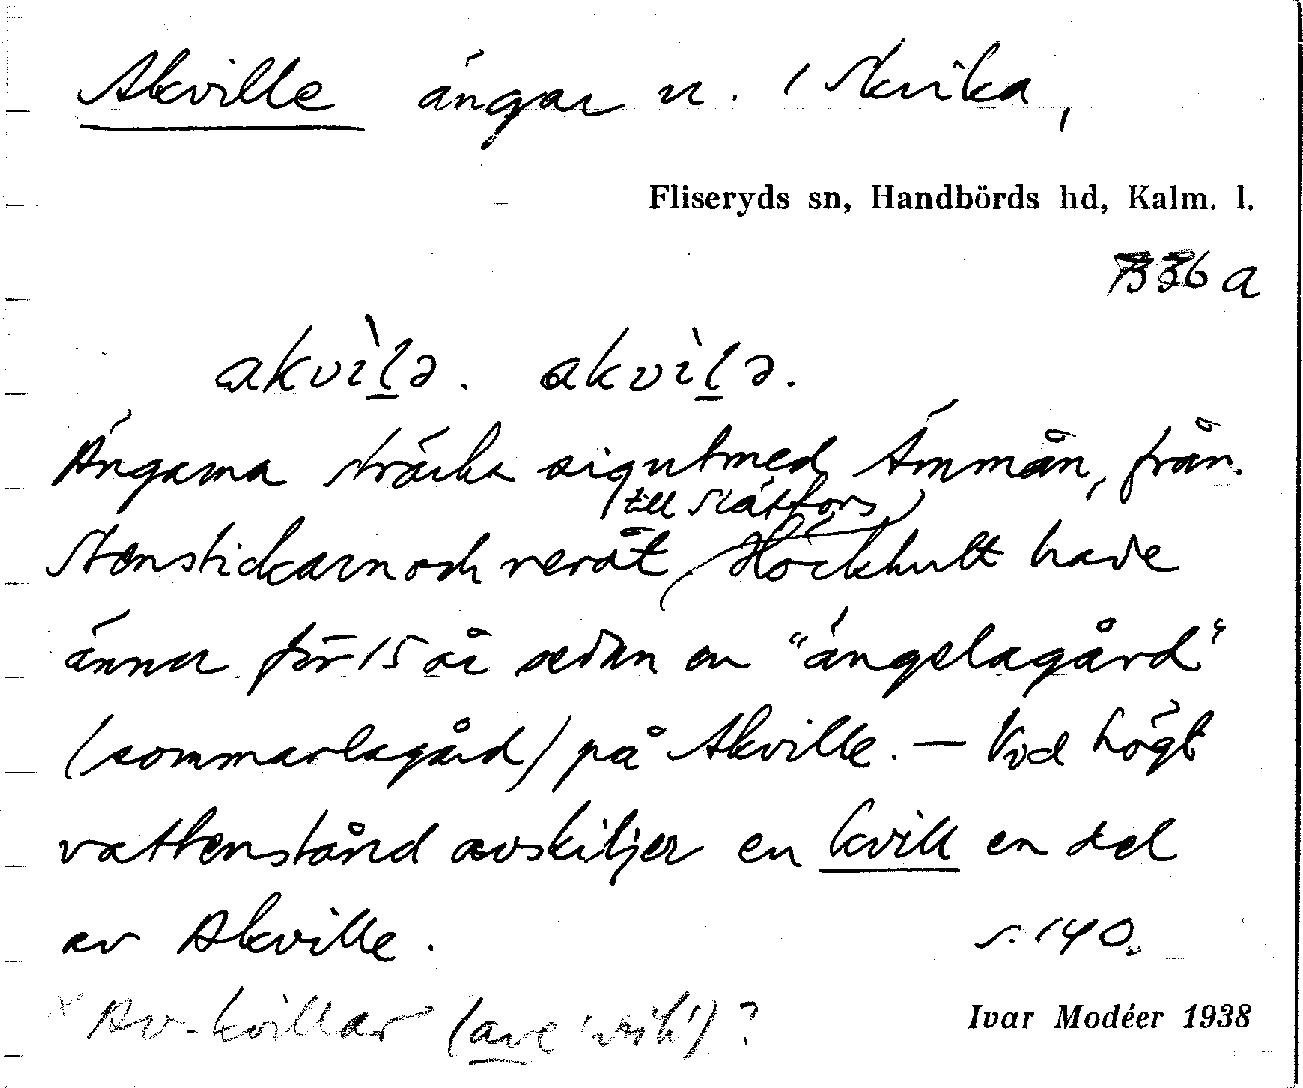 Akville ängar n. i Skvika,
Fliseryds sn, Handbörds hd, Kalm. l.
336 a
akvìlə. akvìlə.
Ängarna sträcka sig utmed Ämmån, från
till Slätfors
Stenstickarn och neråt Höckhult hade
ännu för 15 år sedan en "ängelagård"
(sommarlagård) på Akville. — Vid högt
vattenstånd avskiljer en kvill en del
av Akville.
s. 140.
Av-kvillar (ave 'vik')?
Ivar Modéer 1938